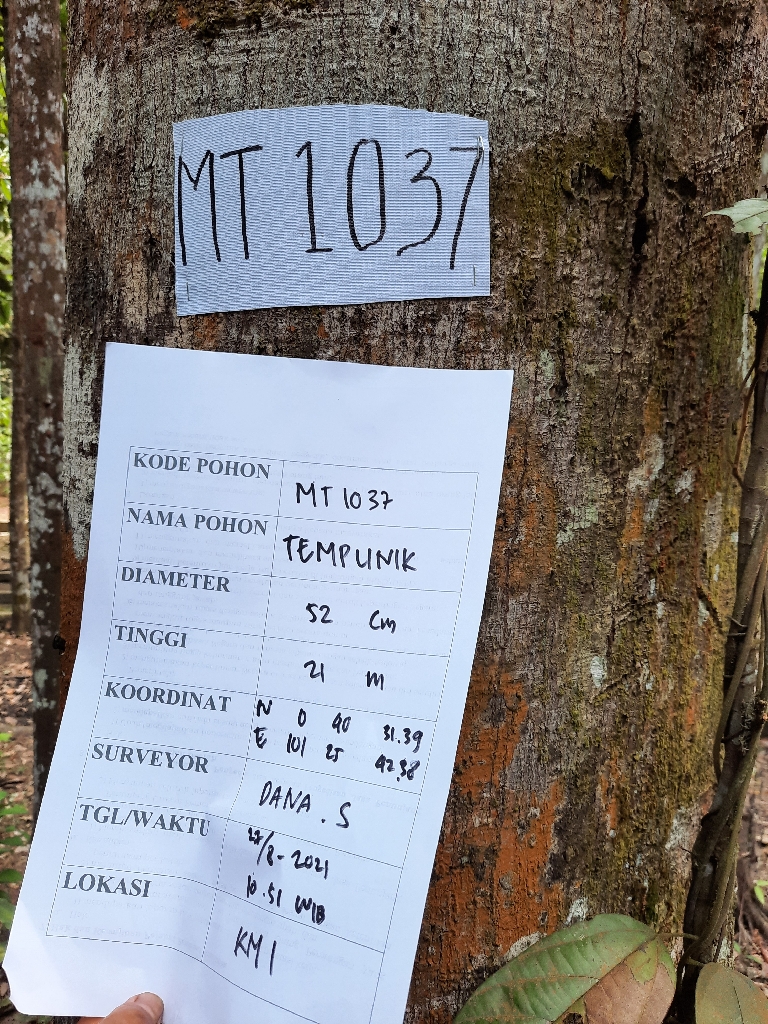 MT 1037
KODE POHON MT 1037
NAMA POHON TEMPUNIK
DIAMETER 52 Cm
TINGGI 21 m
KOORDINAT N 0 40 31.39
E 101 25 42.38
SURVEYOR DANA . S
TGL/WAKTU 27/8-2021
10.51 WIB
LOKASI KM 1